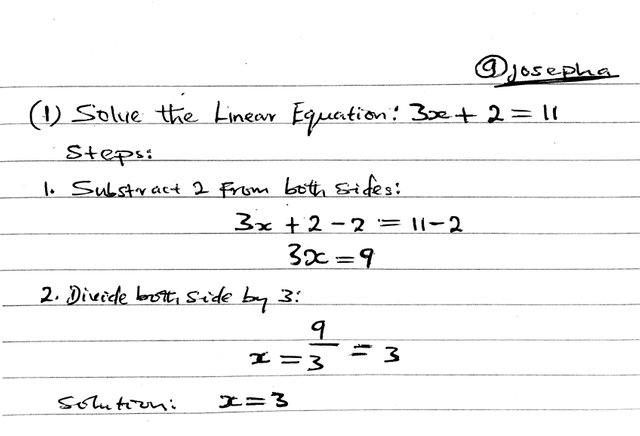 ⑨ Josepha
(1) Solve the Linear Equation: 3x + 2 = 11
Steps:
1. Substract 2 From both sides:
3x + 2 - 2 = 11 - 2
3x = 9
2. Divide both side by 3:
x = 9/3 = 3
Solution: x = 3